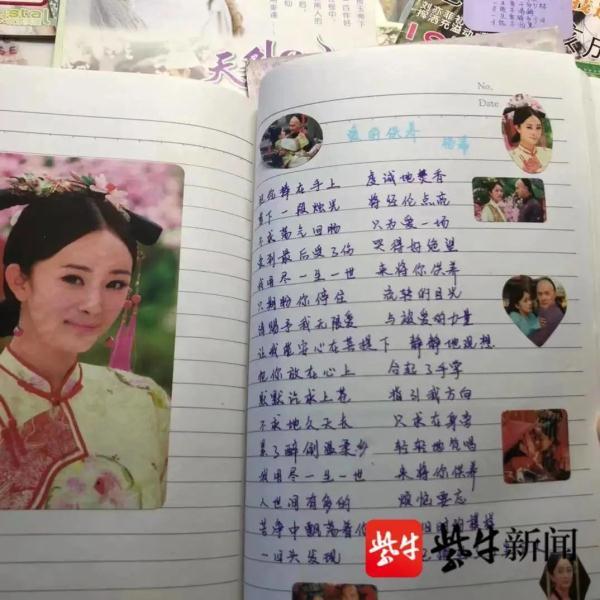 天外
刘亦菲
No.
Date
爱的供养
杨幂
把你捧在手上 虔诚地焚香
剪下一段烛光 将经伦点亮
不求荡气回肠 只为爱一场
爱到最后受了伤 哭得好绝望
我用尽一生一世 来将你供养
只期盼你停住 流转的目光
请赐予我无限爱 与被爱的力量
让我能安心在菩提下 静静地观想
把你放在心上 合起了手掌
默默许求上苍 指引我方向
不求地久天长 只求在身旁
累了醉倒温柔乡 轻轻地气唱
我用尽一生一世 来将你供养
人世间有多的 烦恼要忘
苦净中飘荡着你 旧时的模样
一回头发现
紫牛新闻